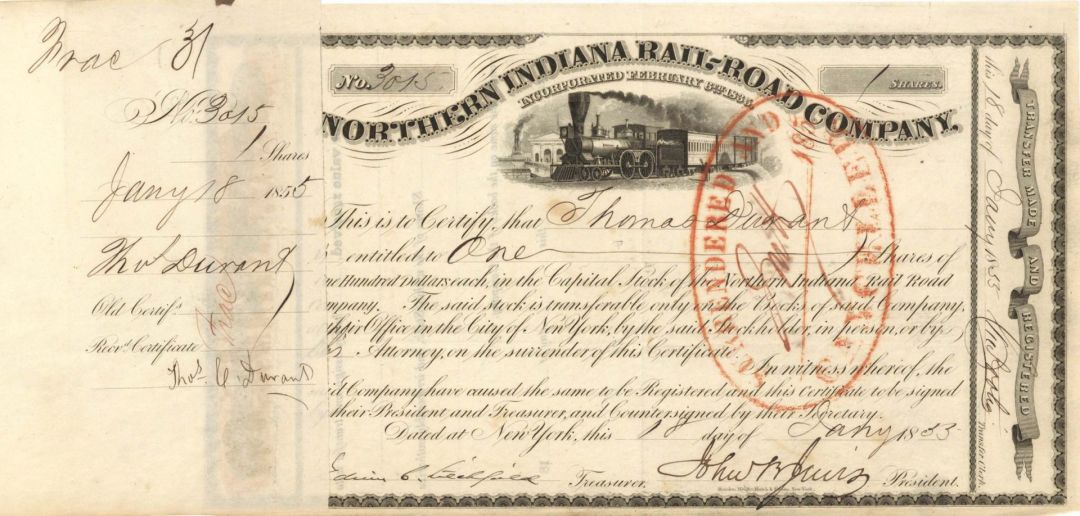 Frac 31
No. 3015
1 Shares
Jany 18 1855
Thos Durant
Old Certifs
Frac
Recd Certificate
Thos. C. Durant
No. 3015
1 SHARES.
NORTHERN INDIANA RAIL-ROAD COMPANY.
INCORPORATED FEBRUARY 8TH 1835
This is to Certify, that Thomas Durant
is entitled to One Shares of
One Hundred Dollars each, in the Capital Stock of the Northern Indiana Rail Road
Company. The said stock is transferable only on the Books of said Company,
at their Office in the City of New York, by the said Stockholder, in person, or by
Attorney, on the surrender of this Certificate. In witness whereof, the
said Company have caused the same to be Registered and this Certificate to be signed
their President and Treasurer, and Countersigned by their Secretary.
Dated at New York, this 18 day of Jany 1855
Edwin C. Litchfield Treasurer.
John B Jervis President.
SURRENDERED AND
CANCELLED
TRANSFER MADE AND REGISTERED
this 18 day of Jany 1855
Transfer Clerk